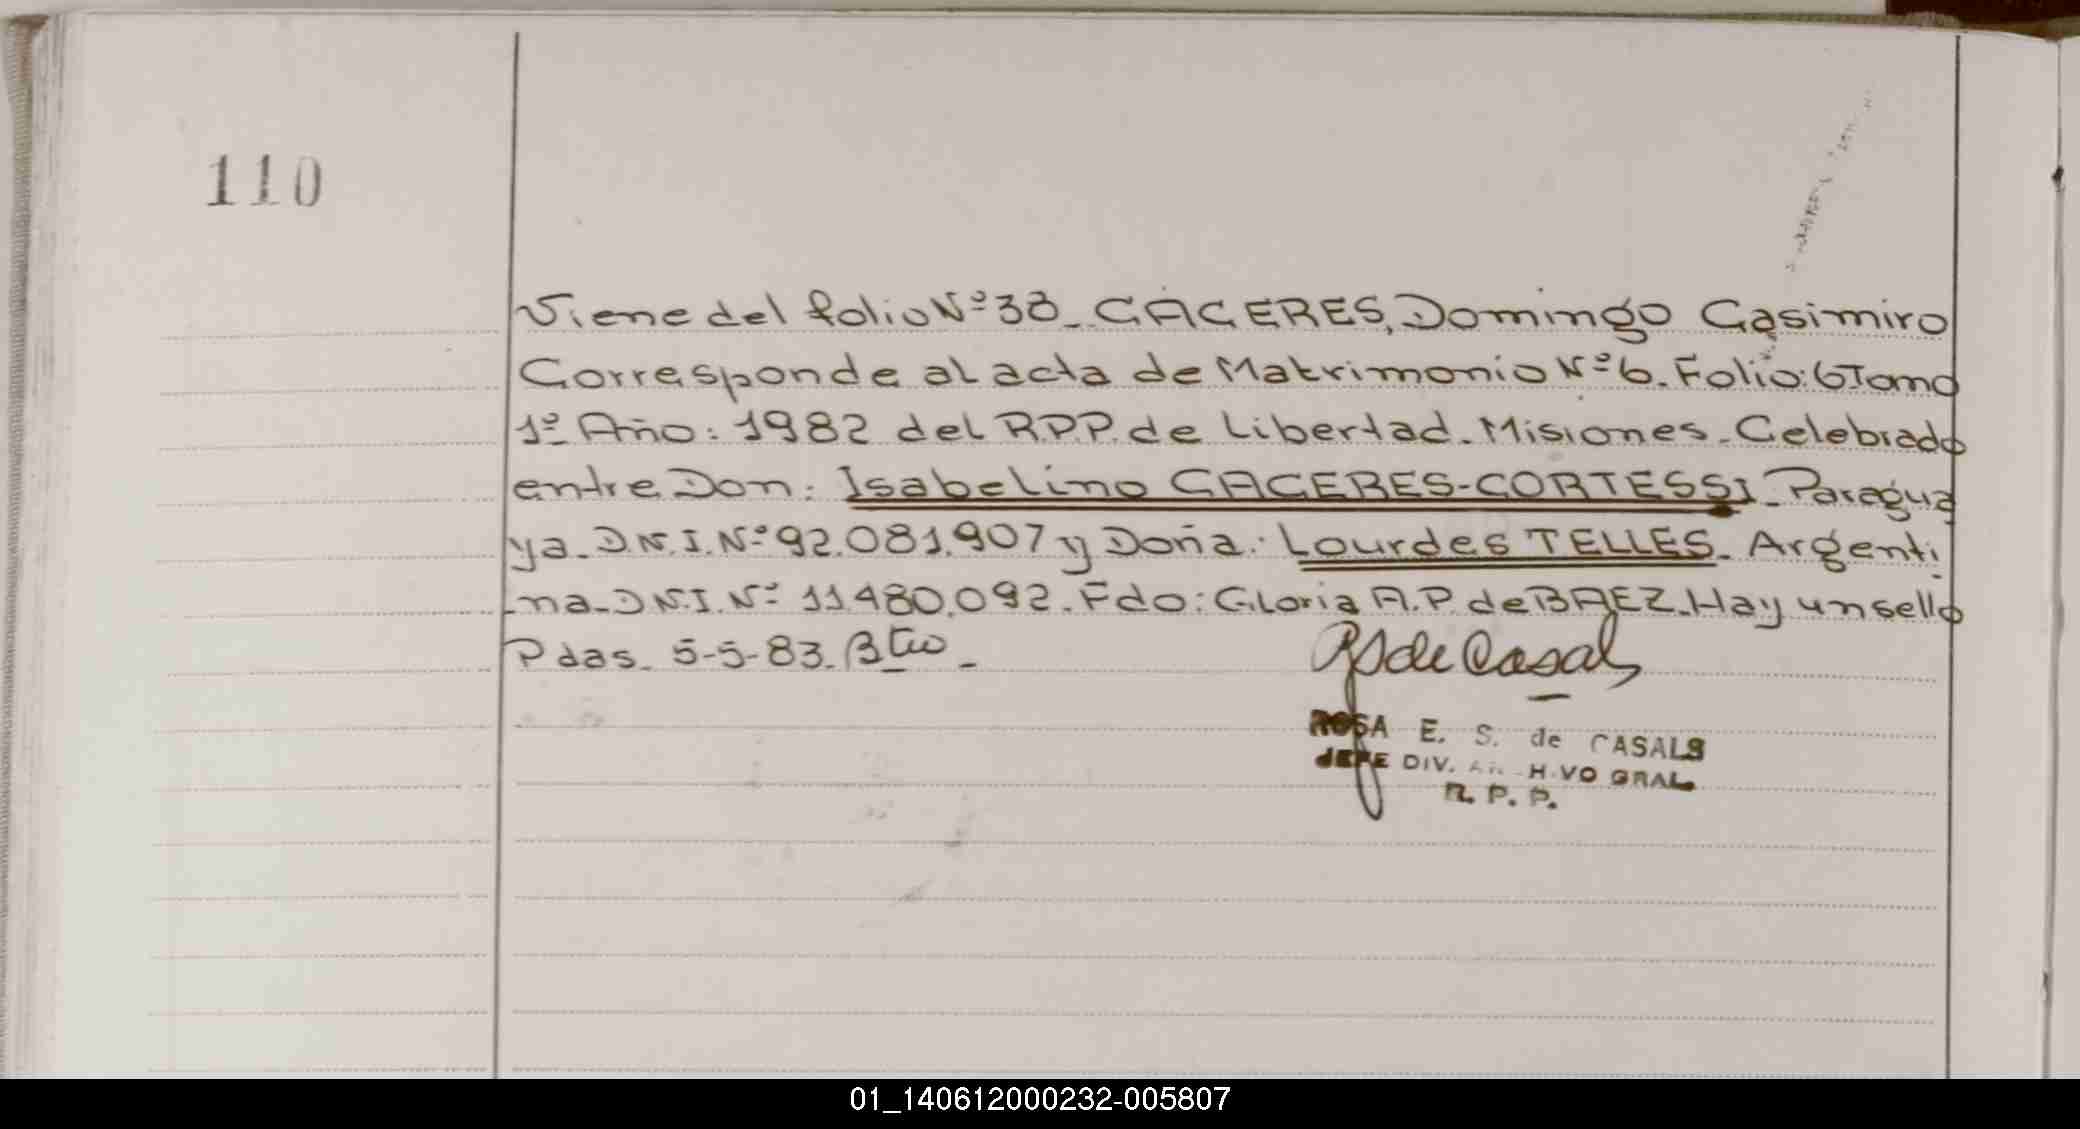 110
Viene del folio Nº 38_ CACERES, Domingo Casimiro
Corresponde al acta de Matrimonio Nº 6. Folio: 6 Tomo
1º Año: 1982 del R.P.P. de Libertad. Misiones. Celebrado
entre Don: Isabelino CACERES-CORTESSI_ Paragua
ya_ D.N.I. Nº 92.081.907 y Doña: Lourdes TELLES_ Argenti
-na_ D.N.I. Nº 11.480.092. Fdo: Gloria A.P. de BAEZ. Hay un sello
Pdas_ 5-5-83.
RS de Casals
ROSA E. S. de CASALS
JEFE DIV. ARCHIVO GRAL.
R. P. P.
01_140612000232-005807